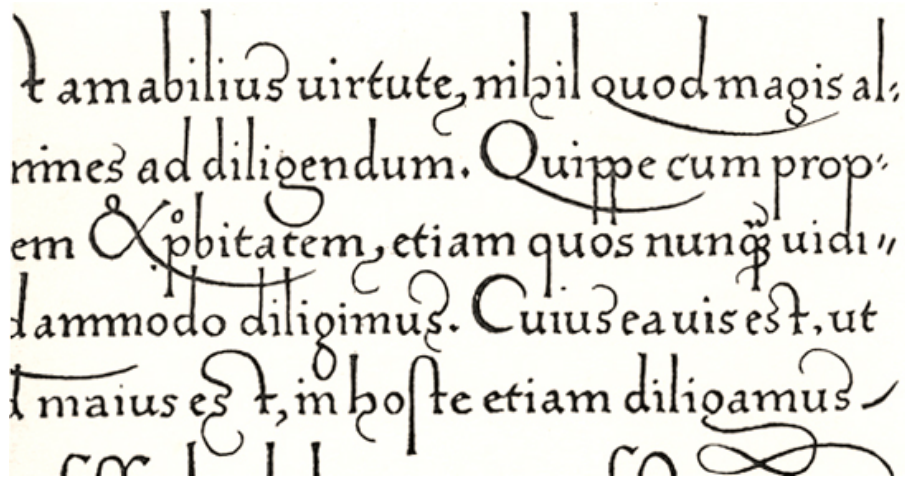 t amabilius uirtute, nihil quod magis al⸗
mines ad diligendum. Quippe cum prop⸗
em & p°bitatem, etiam quos nunꝙ̃ uidi⸗
dammodo diligimus. Cuius ea uis est, ut
d maius est, in hoste etiam diligamus